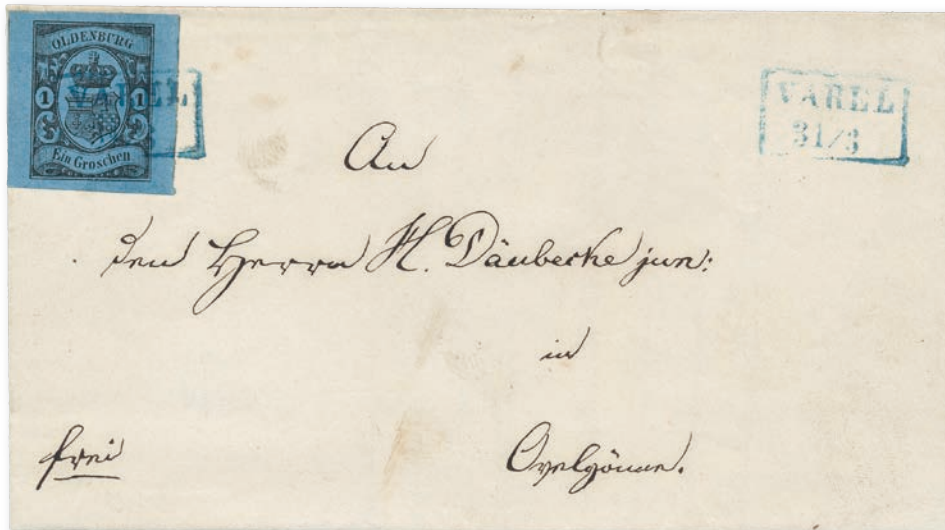 OLDENBURG
1 1
Ein Groschen
VAREL
VAREL
31/3
An
den Herrn H. Däubecke jun:
in
Ovelgönne.
frei